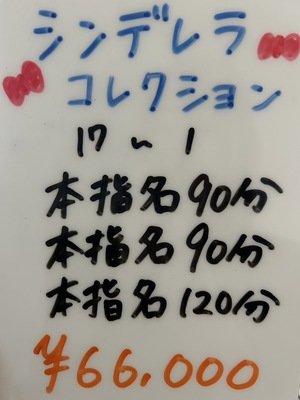 シンデレラ
コレクション
17～1
本指名90分
本指名90分
本指名120分
¥66.000